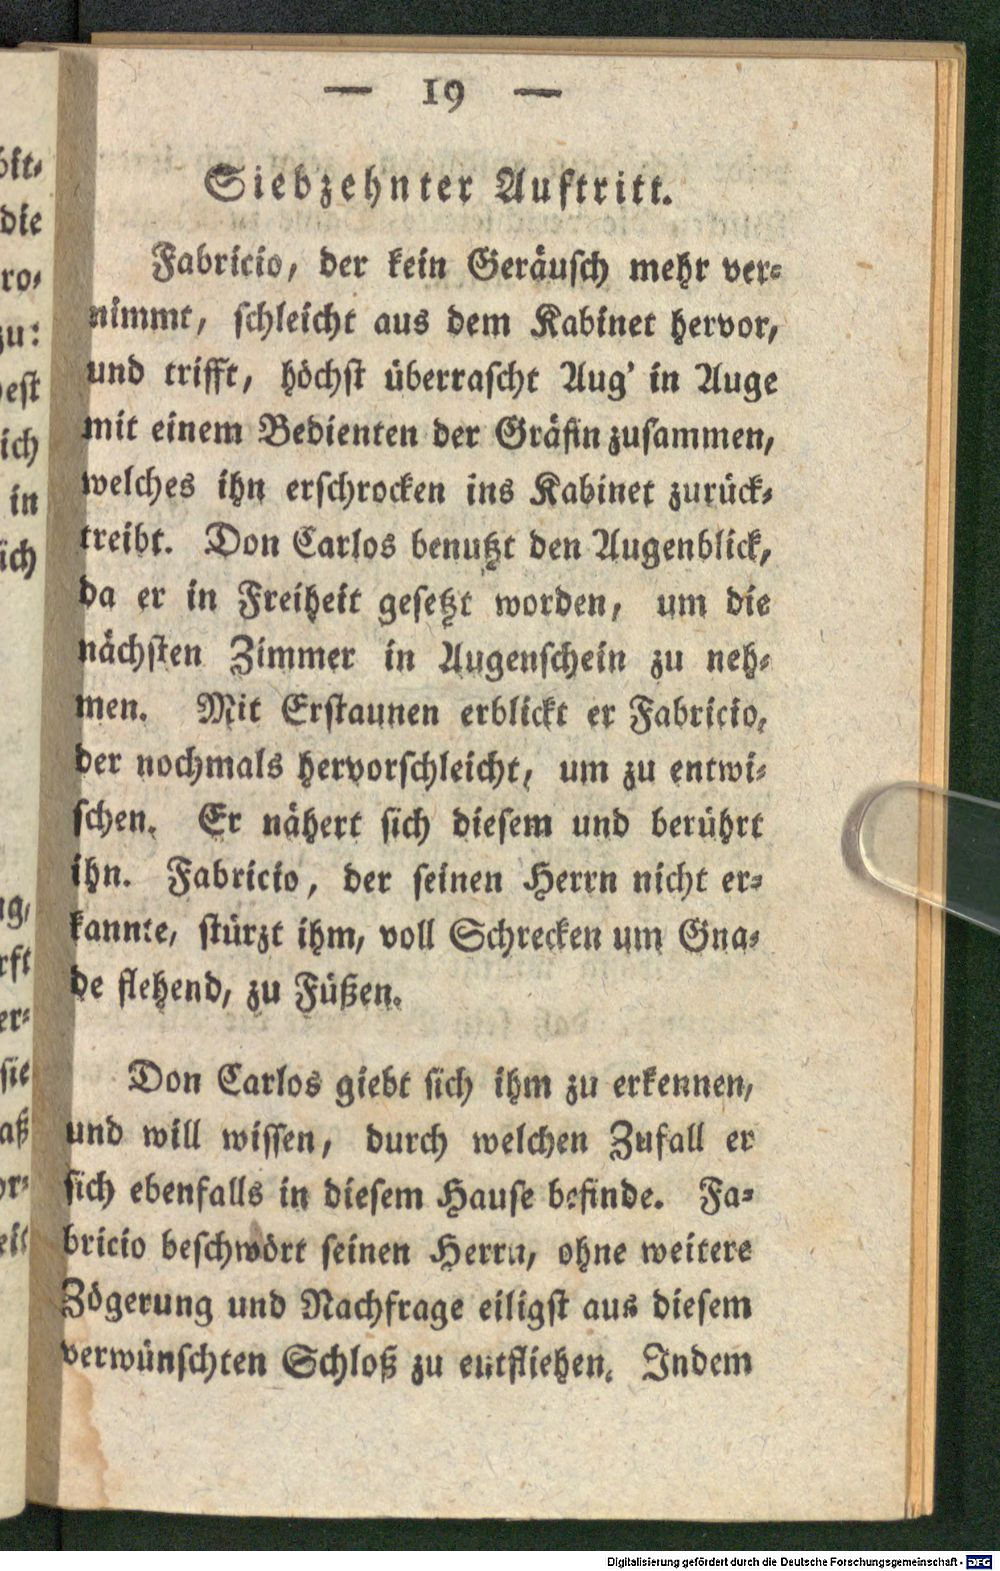 — 19 —
Siebzehnter Auftritt.
Fabricio, der kein Geräusch mehr ver-
nimmt, schleicht aus dem Kabinet hervor,
und trifft, höchst überrascht Aug' in Auge
mit einem Bedienten der Gräfin zusammen,
welches ihn erschrocken ins Kabinet zurück-
treibt. Don Carlos benutzt den Augenblick,
da er in Freiheit gesetzt worden, um die
nächsten Zimmer in Augenschein zu neh-
men. Mit Erstaunen erblickt er Fabricio,
der nochmals hervorschleicht, um zu entwi-
schen. Er nähert sich diesem und berührt
ihn. Fabricio, der seinen Herrn nicht er-
kannte, stürzt ihm, voll Schrecken um Gna-
de flehend, zu Füßen.
Don Carlos giebt sich ihm zu erkennen,
und will wissen, durch welchen Zufall er
sich ebenfalls in diesem Hause befinde. Fa-
bricio beschwört seinen Herrn, ohne weitere
Zögerung und Nachfrage eiligst aus diesem
verwünschten Schloß zu entfliehen. Indem
Digitalisierung gefördert durch die Deutsche Forschungsgemeinschaft - DFG